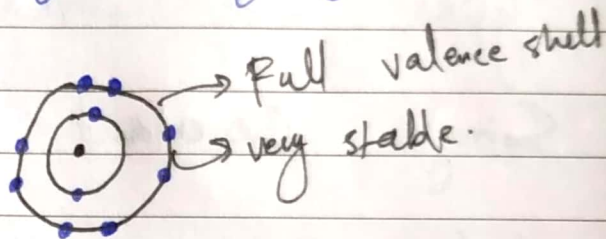 Full valence shell
very stable.